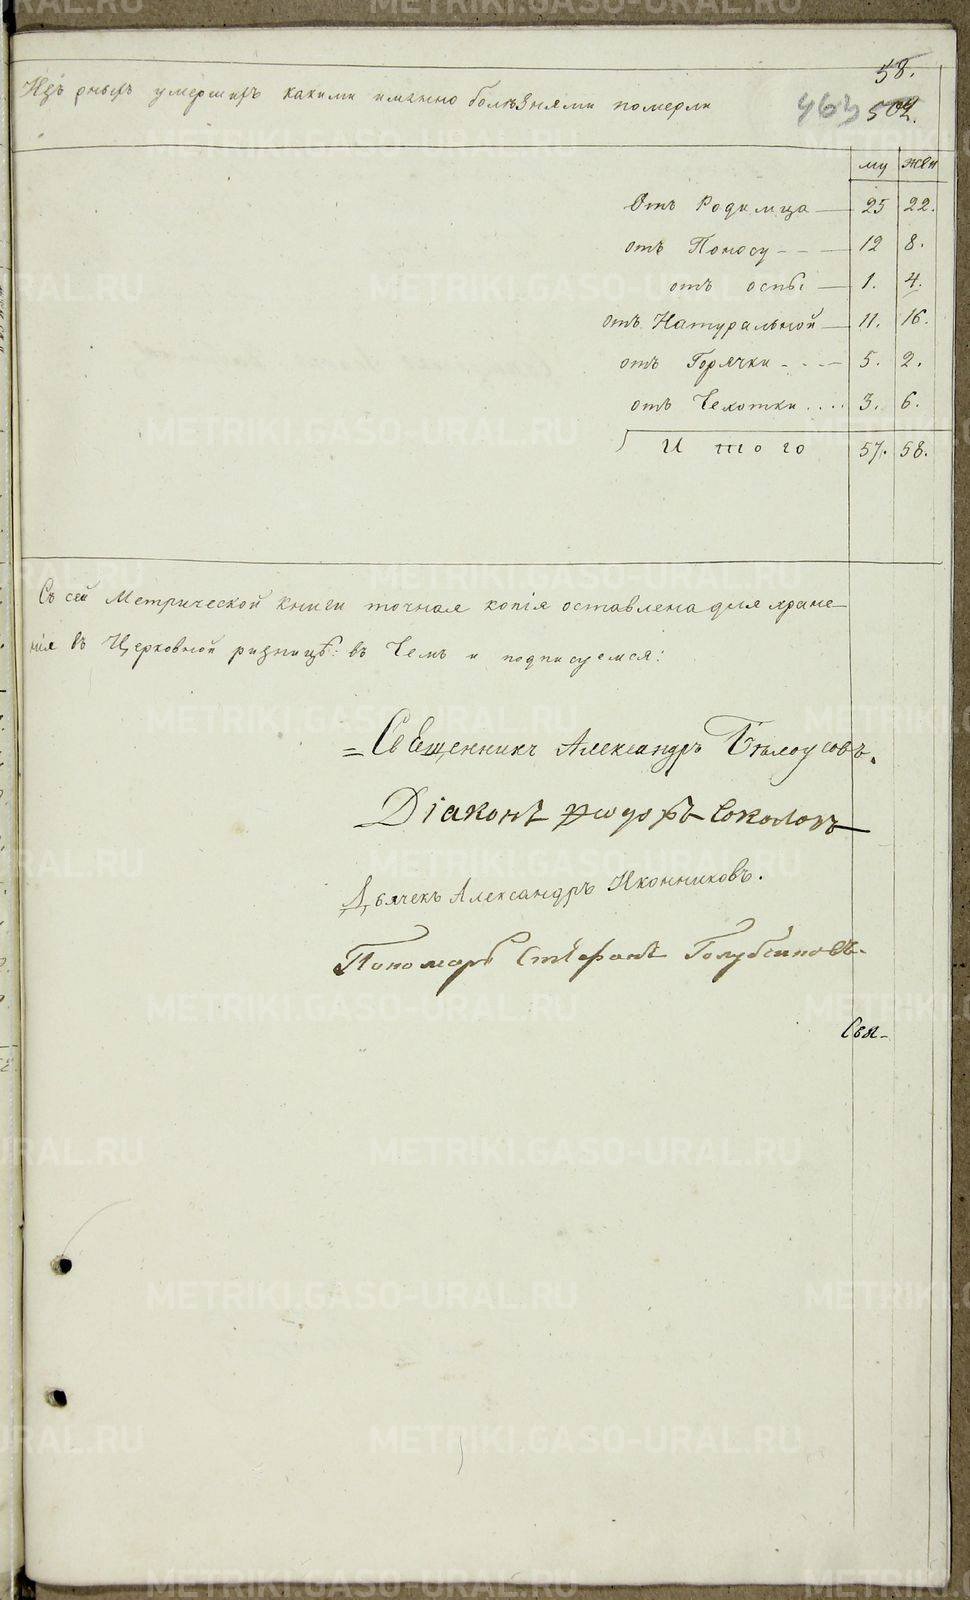 58.
Изъ оныхъ умершихъ какими именно болѣзнями померли
463 502.
му жен
Отъ Родимца — 25 22.
отъ Поносу - - — 12 8.
отъ оспы — 1. 4.
отъ Натуральной — 11. 16.
отъ Горячки - - - — 5. 2.
отъ Чехотки .... 3. 6.
Итого 57. 58.
Съ сей Метрической книги точная копія оставлена для хране-
нія въ Церковной ризницѣ: въ Чемъ и подписуемся:
= Священникъ Александръ Бѣлоусовъ.
Діаконъ Ѳиодоръ Соколовъ
Дьячекъ Александръ Иконниковъ.
Пономарь Стефанъ
Свя-
METRIKI.GASO-URAL.RU